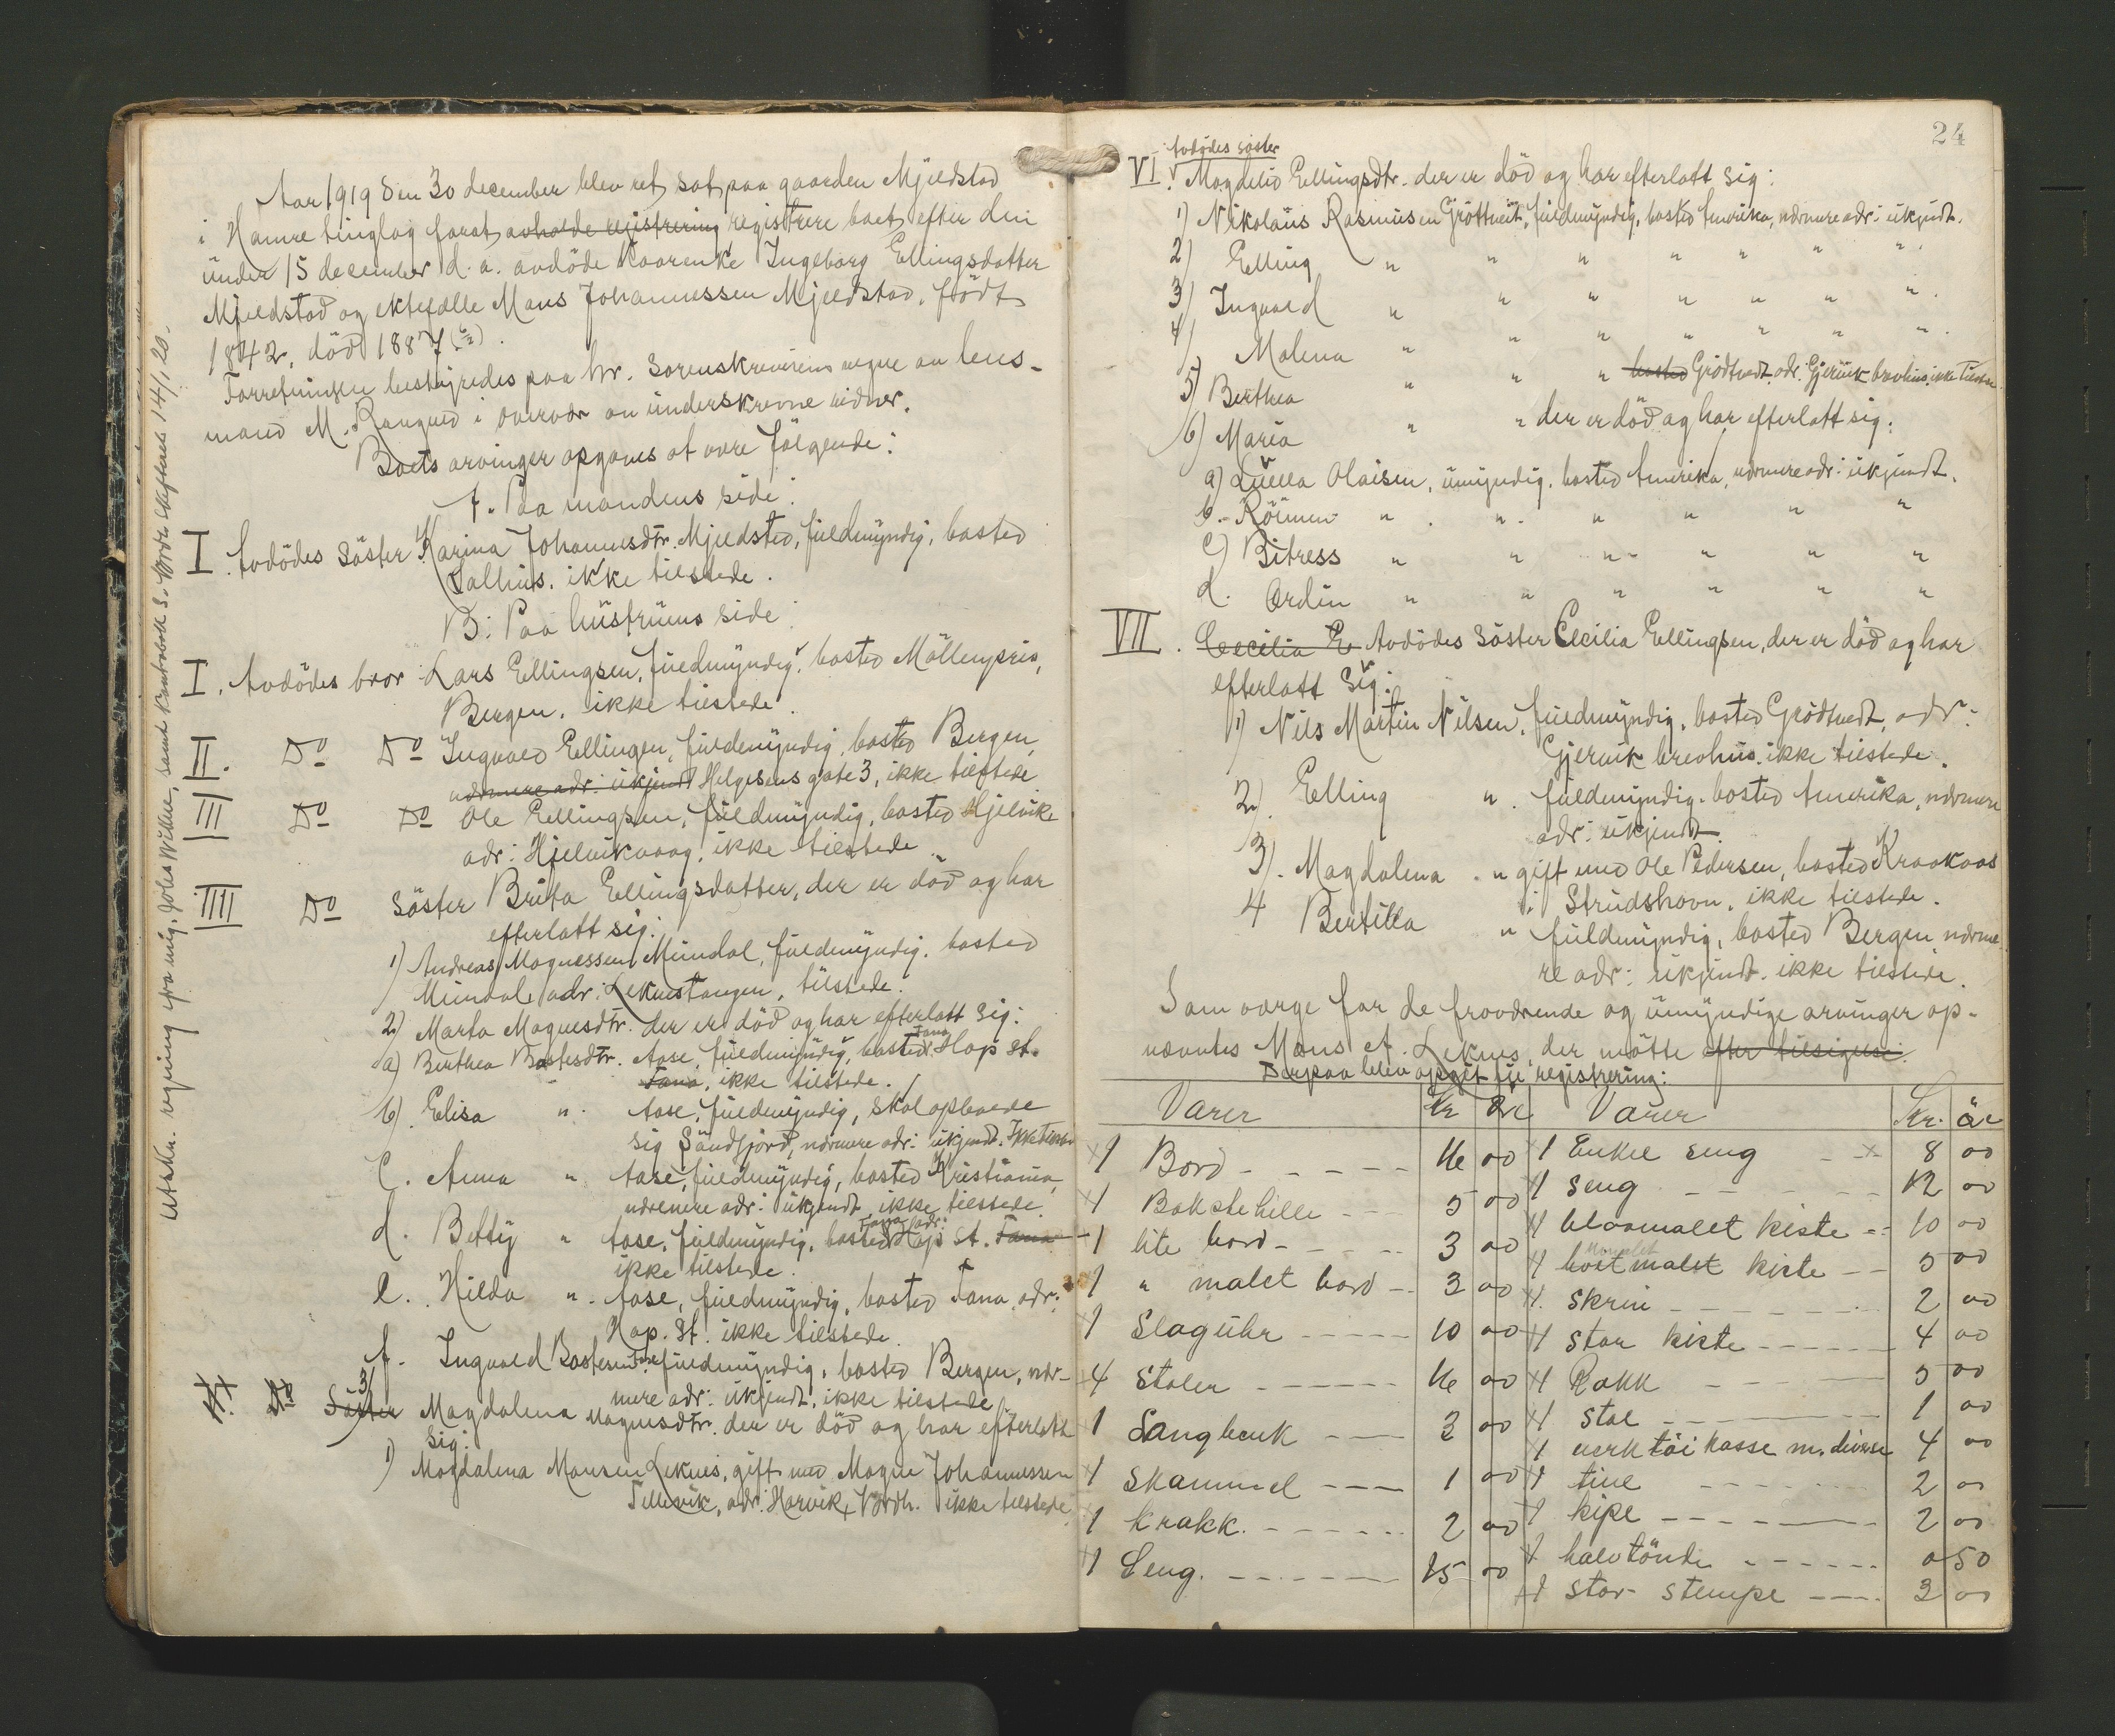 Aar 1919 den 30 december blev ret sat paa gaarden Mjeldstad
i Hamre tinglag forat avholde registrering registrere boet efter den
under 15 december d. a. avdöde Kaarenke Ingeborg Ellingsdatter
Mjeldstad og ektefælle Mons Johannessen Mjeldstad, födt
1842, död 1887
Forretningen bestyredes paa hr. Sorenskriverens vegne av lens-
mand M. Rangved i overvær av underskrevne vidner.
Boets arvinger opgaves at være fölgende:
A. Paa mandens side:
I. Avdödes Söster Karina Johannesdtr. Mjeldsted, fuldmyndig, bosted
Salhus. ikke tilstede.
B: Paa hustruens side:
I. Avdödes bror Lars Ellingsen, fuldmyndig, bosted Möllenpris,
Bergen. ikke tilstede.
II. Do Do Ingvald Ellingsen, fuldmyndig, bosted Bergen,
nærmere adr: ukjendt Helgesens gate 3, ikke tilstede
III Do Do Ole Ellingsen, fuldmyndig, bosted Hjelvike
adr: Hjelvikvaag. ikke tilstede
IIII Do Söster Brita Ellingsdatter, der er död og har
efterlatt sig:
1) Andreas Magnessen Mundal, fuldmyndig. bosted
Mundal adr: Leknestangen, tilstede.
2) Marta Magnesdtr. der er död og har efterlatt sig:
a) Berthea Bastesdtr. Aase, fuldmyndig, bosted Fana Hop st.
Fana, ikke tilstede.
b). Elisa " Aase, fuldmyndig, skal opholde
sig Sandfjord, nærmere adr: ukjendt. Ikke tilstede
C. Anna " Aase, fuldmyndig, bosted Kristiania,
nærmere adr: ukjendt, ikke tilstede.
d. Betty " Aase, fuldmyndig, bosted Fana adr: Hop St. Fana
ikke tilstede.
e. Hilda " Aase, fuldmyndig, bosted Fana, adr:
Hop. St. ikke tilstede.
f. Ingvald Bastesen Aase fuldmyndig, bosted Bergen, nær-
mere adr: ukjendt, ikke tilstede
V. Do Söster 3) Magdalena Magnesdtr. der er död og har efterlatt
sig:
1) Magdalena Monsen Leknes, gift med Magne Johannessen
Tellevik, adr: Horvik, Nordh. ikke tilstede
Utskr. regning fra mig, Johs Wikne, samt Kontrabok s. Nordh. skifteret 14/1 20.
24
Avdödes söster
VI. Magdeli Ellingsdtr. der er död og har efterlatt sig:
1) Nikolaus Rasmusen Gröttveit, fuldmyndig, bosted Amerika, nærmere adr: ukjendt.
2) Elling " " " " " " "
3) Ingvald " " " " " " "
4) Malena " " " " " " "
5) Berthea " " " bosted Grödtvedt. adr. Gjervik brevhus. ikke tilstede.
6) Maria " " der er död og har efterlatt sig:
a) Luella Olaisen, umyndig. bosted Amerika, nærmere adr: ukjendt.
b. Röimen " " " " " "
c) Bitress " " " " " "
d. Ordin " " " " " "
VII. Cecilia E Avdödes Söster Cecilia Ellingsen, der er död og har
efterlatt sig:
1) Nils Martin Nilsen, fuldmyndig, bosted Grödtvedt, adr:
Gjervik brevhus. ikke tilstede.
2) Elling " fuldmyndig. bosted Amerika, nærmere
adr: ukjendt.
3). Magdalena " gift med Ole Pedersen, bosted Kraakaas
i Strudshavn, ikke tilstede.
4 Bertilla " fuldmyndig, bosted Bergen, nærme
re adr: ukjendt. ikke tilstede.
Som værge for de fraværende og umyndige arvinger op-
nævntes Mons A. Leknes, der mötte efter tilsigelse.
Derpaa blev opgit til registrering:
Varer Kr Öre Varer Kr. öre
1 Bord 16 00 1 Enkel seng 8 00
1 Bakstehille 5 00 1 seng 12 00
1 lite bord 3 00 1 blaamalet kiste 10 00
1 " malet bord 3 00 1 bort malet umalet kiste 5 00
1 Slaguhr 10 00 1 skrin 2 00
4 Stoler 16 00 1 stor kiste 4 00
1 Langbenk 3 00 1 Rokk 5 00
1 Skammel 1 00 1 stol 1 00
1 krakk. 2 00 1 verktöi kasse m. diverse 4 00
1 Seng. 15 00 1 tine 2 00
1 kipe 2 00
1 halvtönde 0 50
1 stor stempe 3 00